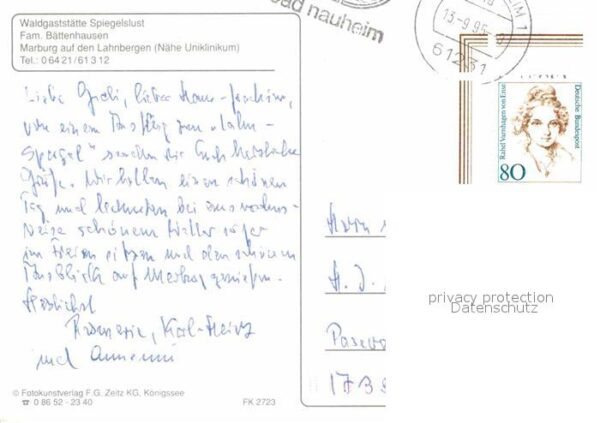 Waldgaststätte Spiegelslust
Fam. Bättenhausen
Marburg auf den Lahnbergen (Nähe Uniklinikum)
Tel.: 0 64 21 / 61 3 12
Liebe Gudi, lieber Hans-Joachim,
von einem Ausflug zum "Lahn-
Spiegel" senden wir Euch herzliche
Grüße. Wir hatten einen schönen
Tag und konnten bei
schönem Wetter sogar
im Freien sitzen und den schönen
Ausblick auf Marburg genießen.
Herzlichst
Rosmarie, Karl-Heinz
und Annemi
© Fotokunstverlag F.G. Zeitz KG, Königssee
☎ 0 86 52 - 23 40
FK 2723
bad nauheim
13.-9.95
61231
Deutsche Bundespost
Rahel Varnhagen von Ense
80
H. J.
Pasewa
1730
privacy protection
Datenschutz